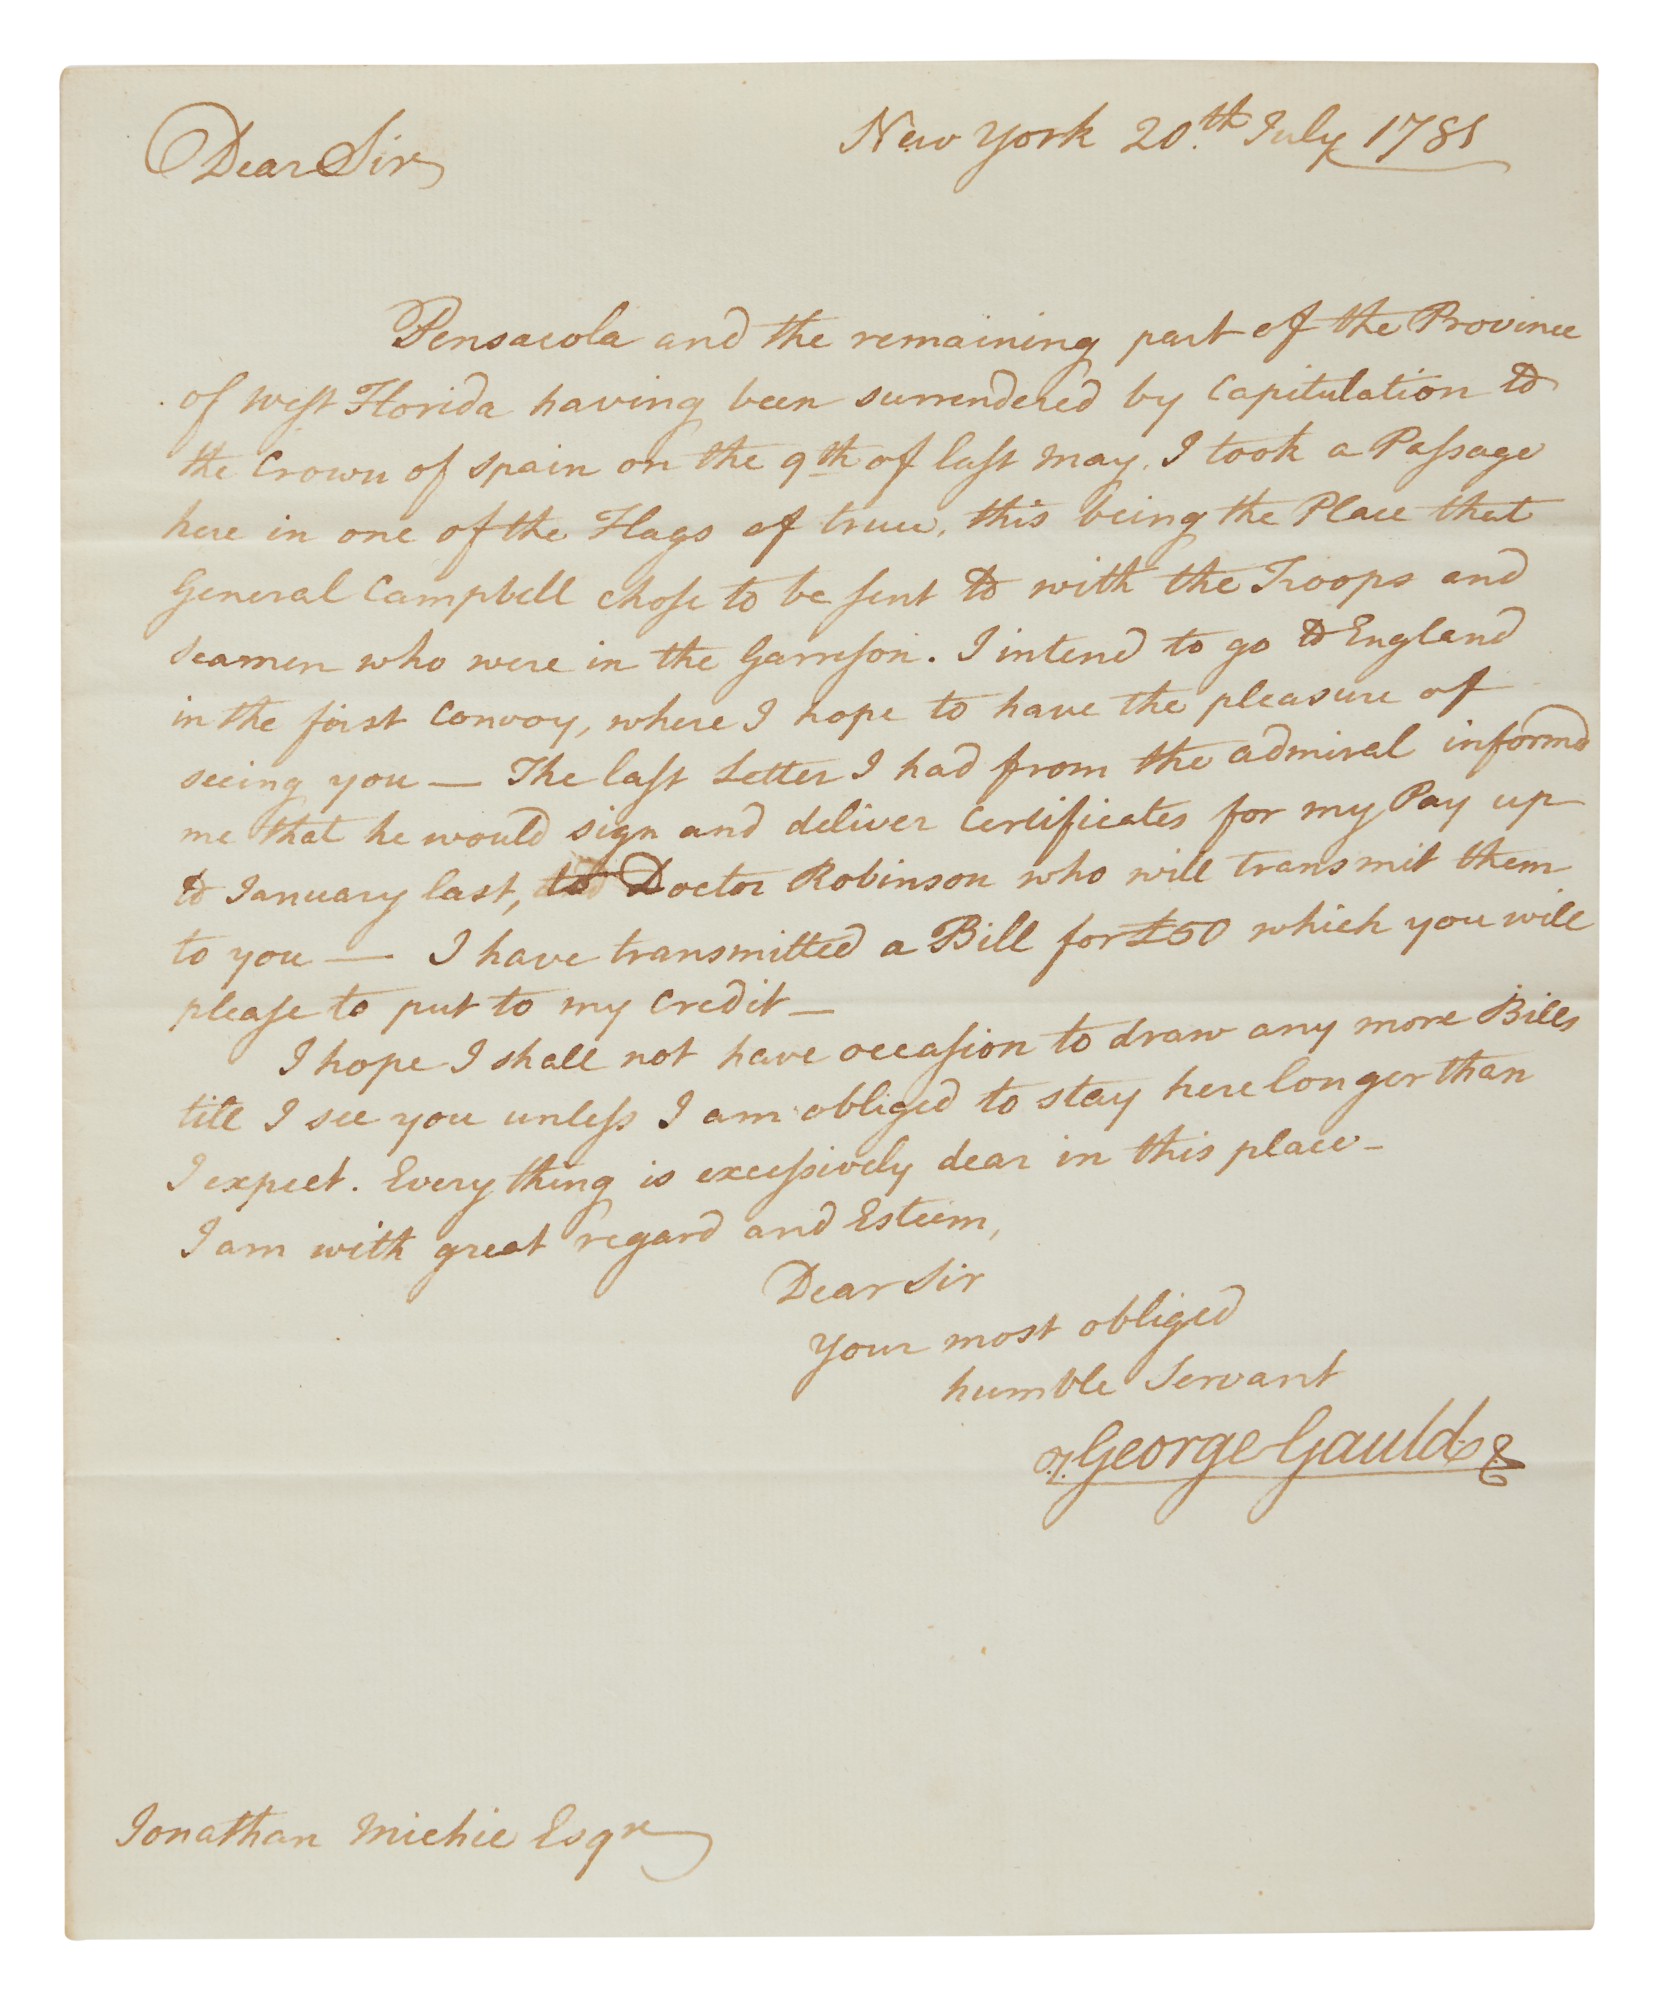 New York 20.th July 1781
Dear Sir
Pensacola and the remaining part of the Province
of West Florida having been surrendered by Capitulation to
the Crown of Spain on the 9th of last May, I took a Passage
here in one of the Flags of truce, this being the Place that
General Campbell chose to be sent to with the Troops and
Seamen who were in the Garrison. I intend to go to England
in the first Convoy, where I hope to have the pleasure of
seeing you — The last Letter I had from the Admiral informd
me that he would sign and deliver Certificates for my Pay up
to January last, to Doctor Robinson who will transmit them
to you — I have transmitted a Bill for £50 which you will
please to put to my Credit —
I hope I shall not have occasion to draw any more Bills
till I see you unless I am obliged to stay here longer than
I expect. Every thing is excessively dear in this place —
I am with great regard and Esteem,
Dear Sir
Your most obliged
humble Servant
George Gauld
Jonathan Michie Esqre